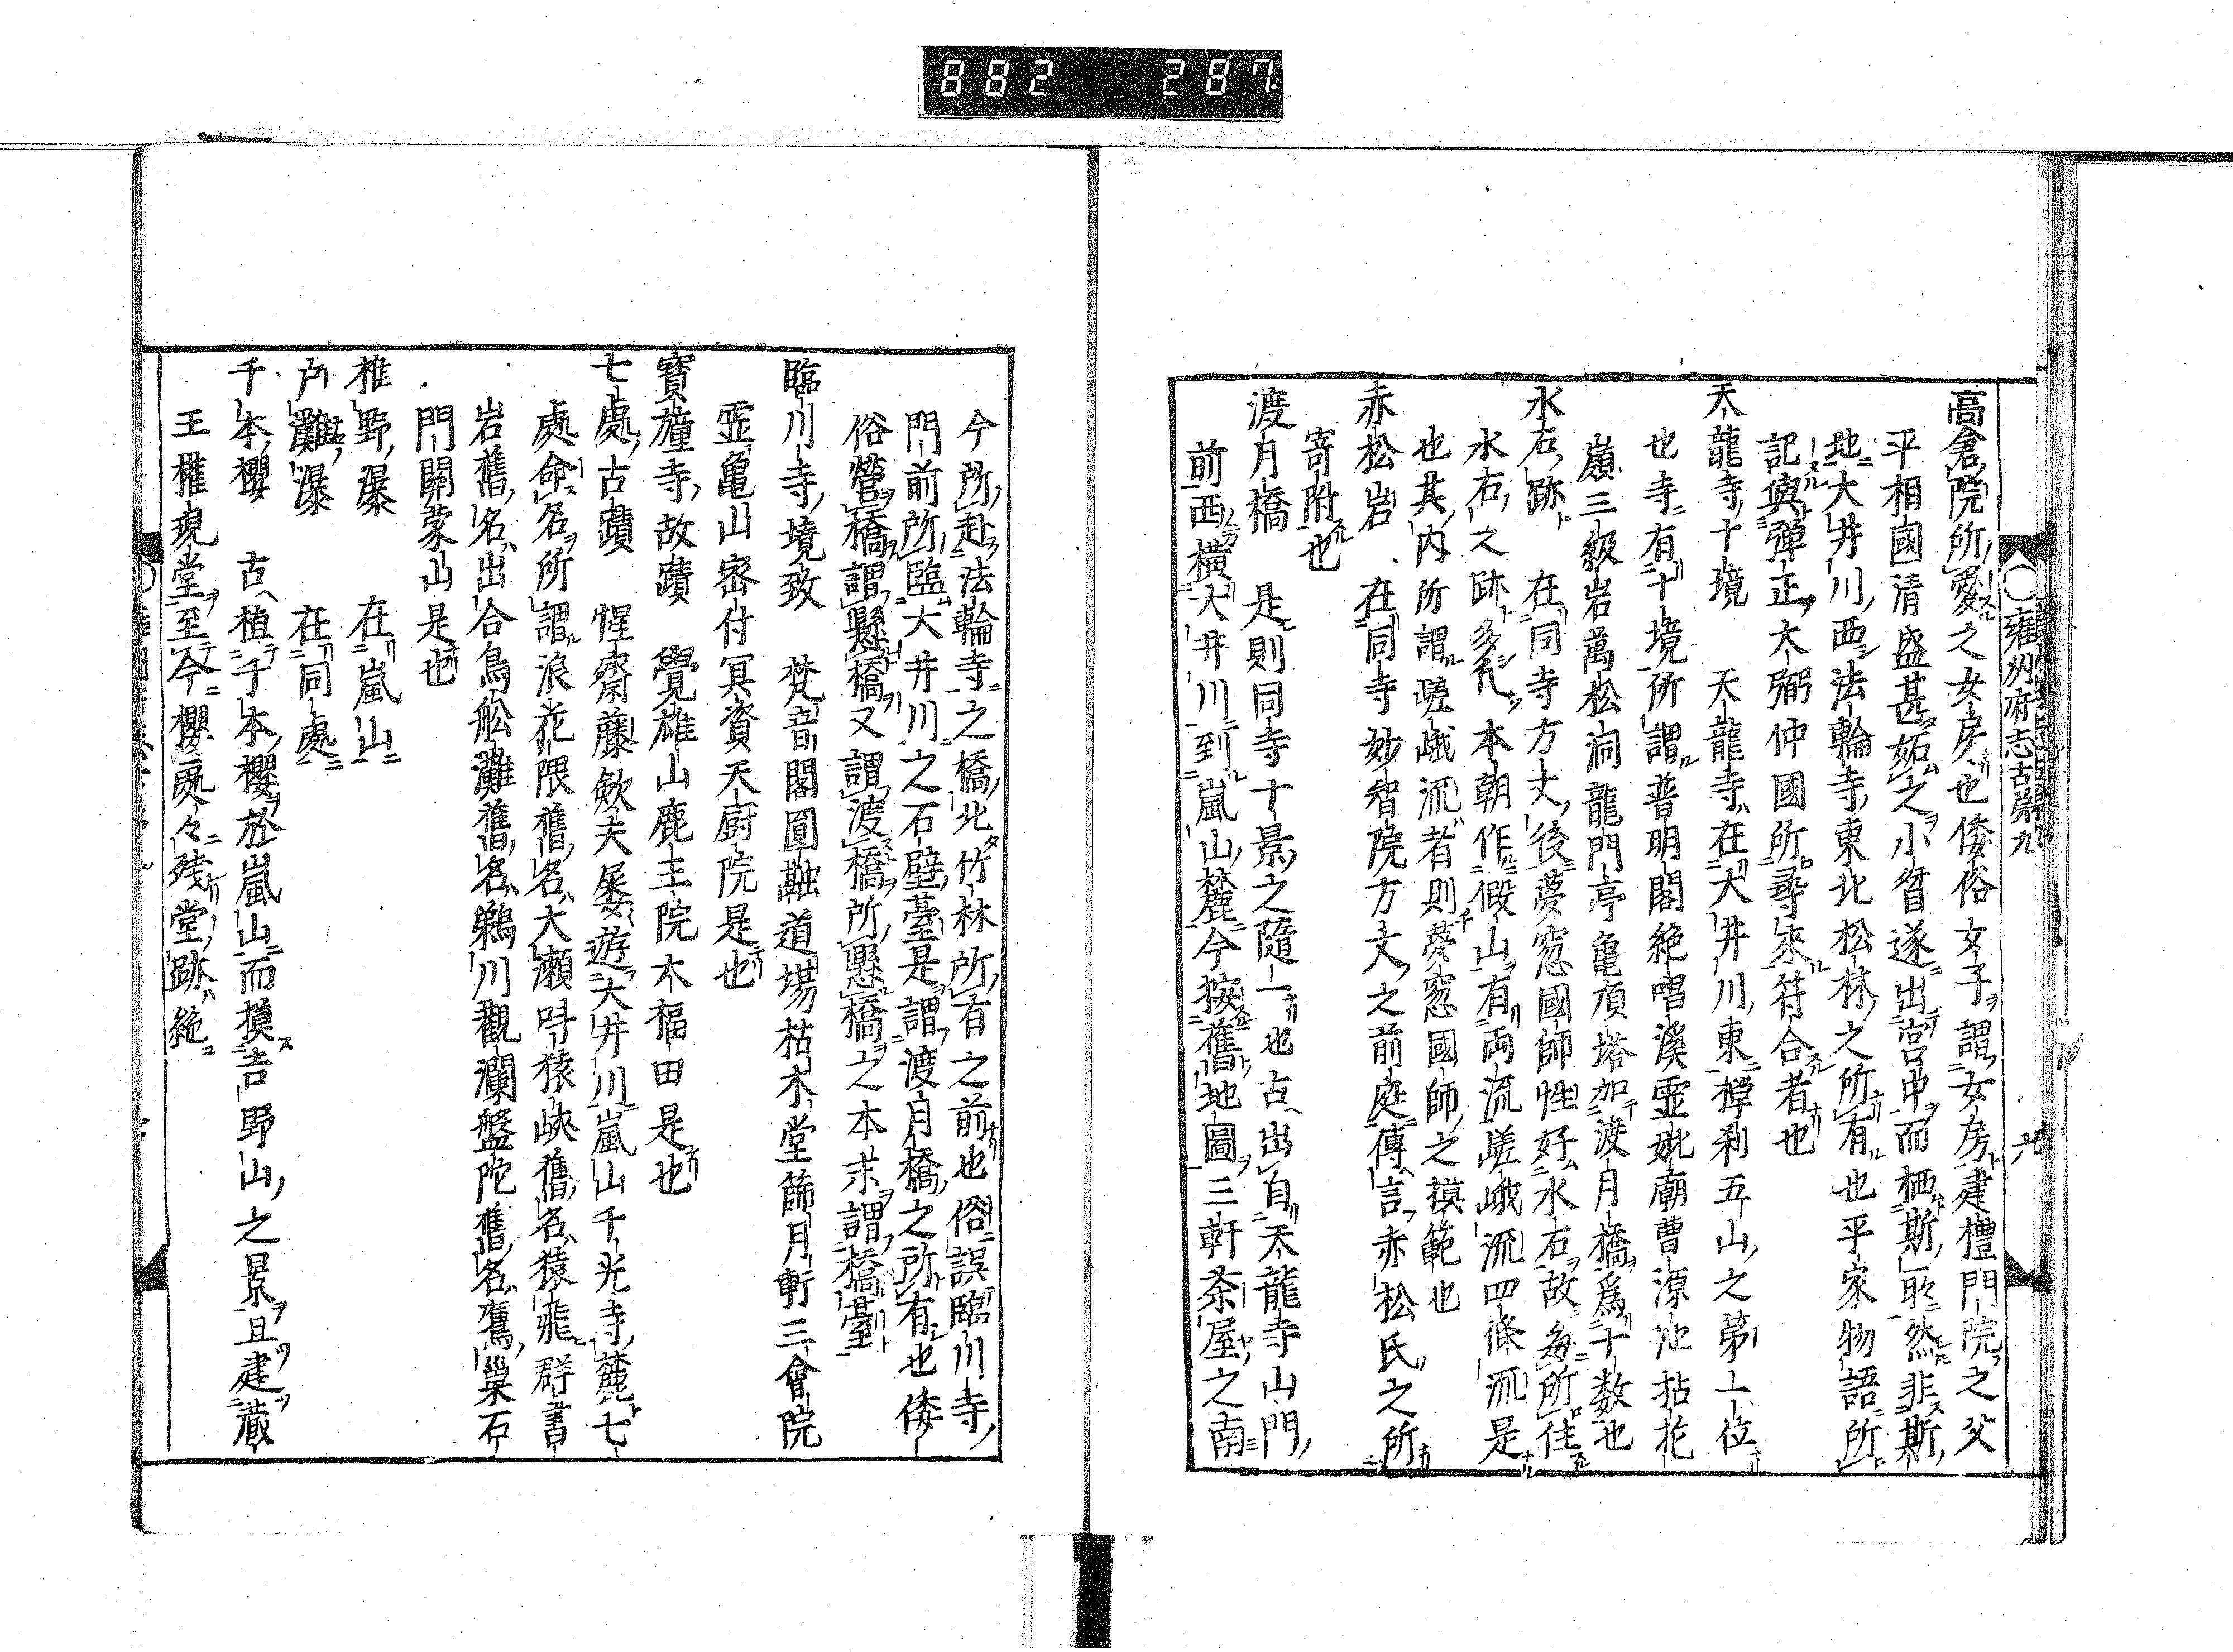 882 287
雍州府志古第九 六
高倉院所愛之女房也倭俗女子謂女房建禮門院之父
平相國清盛甚妬之小督遂出宮中而栖斯所然非斯
地大井川西法輪寺東北松林之所有也平家物語所
記與彈正大弼仲國所尋來符合者也
天龍寺十境 天龍寺在大井川東禪刹五山之第一位
也寺有十境所謂普明閣絶唱溪靈庇廟曹源池拈花
嶺三級岩萬松洞龍門亭亀頂塔加渡月橋爲十数也
水石跡 在同寺方丈後夢窓國師性好水石故毎所住
水石之跡多矣本朝作假山有両流嵯峨流四條流是
也其内所謂嵯峨流者則夢窓國師之摸範也
赤松岩 在同寺妙智院方丈之前庭傳言赤松氏之所
寄附也
渡月橋 是則同寺十景之隨一也古出自天龍寺山門
前西横大井川到嵐山麓今按舊地圖三軒茶屋之南
今所赴法輪寺之橋北竹林所有之前也俗誤臨川寺
門前所臨大井川之石壁臺是謂渡月橋之所有也倭
俗營橋謂懸橋又謂渡橋所懸橋之本末謂橋臺
臨川寺境致 梵音閣圓融道場枯木堂篩月軒三會院
霊亀山密付冥資天厨院是也
寶幢寺故蹟 覺雄山鹿王院木福田是也
七處古蹟 惺齋藤歛夫屡遊大井川嵐山千光寺麓七
處命名所謂浪花隈舊名大瀬叫猿峽舊名猿飛群書
岩舊名出合鳥舩灘舊名鵜川觀瀾盤陀舊名鷹巢石
門關蒙山是也
椎野瀑 在嵐山
戸灘瀑 在同處
千本櫻 古植千本櫻於嵐山而摸吉野山之景且建蔵
王権現堂至今櫻處々殘堂跡絶